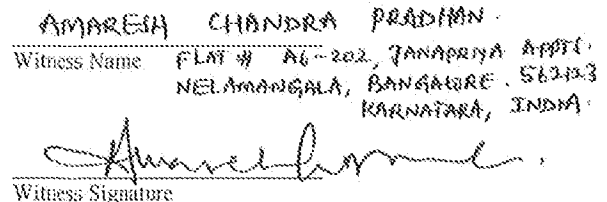 AMARESH CHANDRA PRADHAN.
Witness Name FLAT # A6-202, JANAPRIYA APPTS.
NELAMANGALA, BANGALORE. 562123
KARNATAKA, INDIA.
Witness Signature